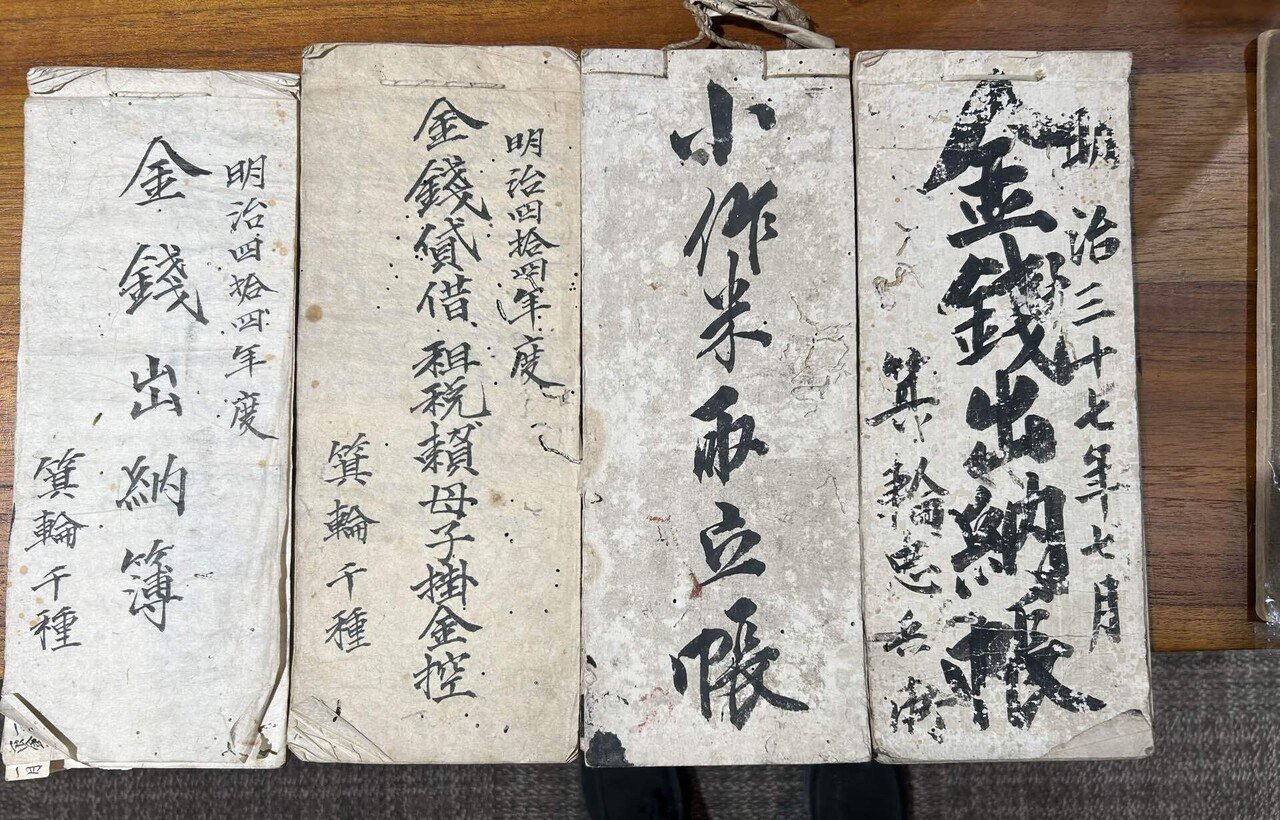 明治三十七年七月
金錢出納帳
箕輪忠兵衛
小作米取立帳
明治四拾四年度
金錢貸借租税賴母子掛金控
箕輪千種
明治四拾四年度
金錢出納簿
箕輪千種